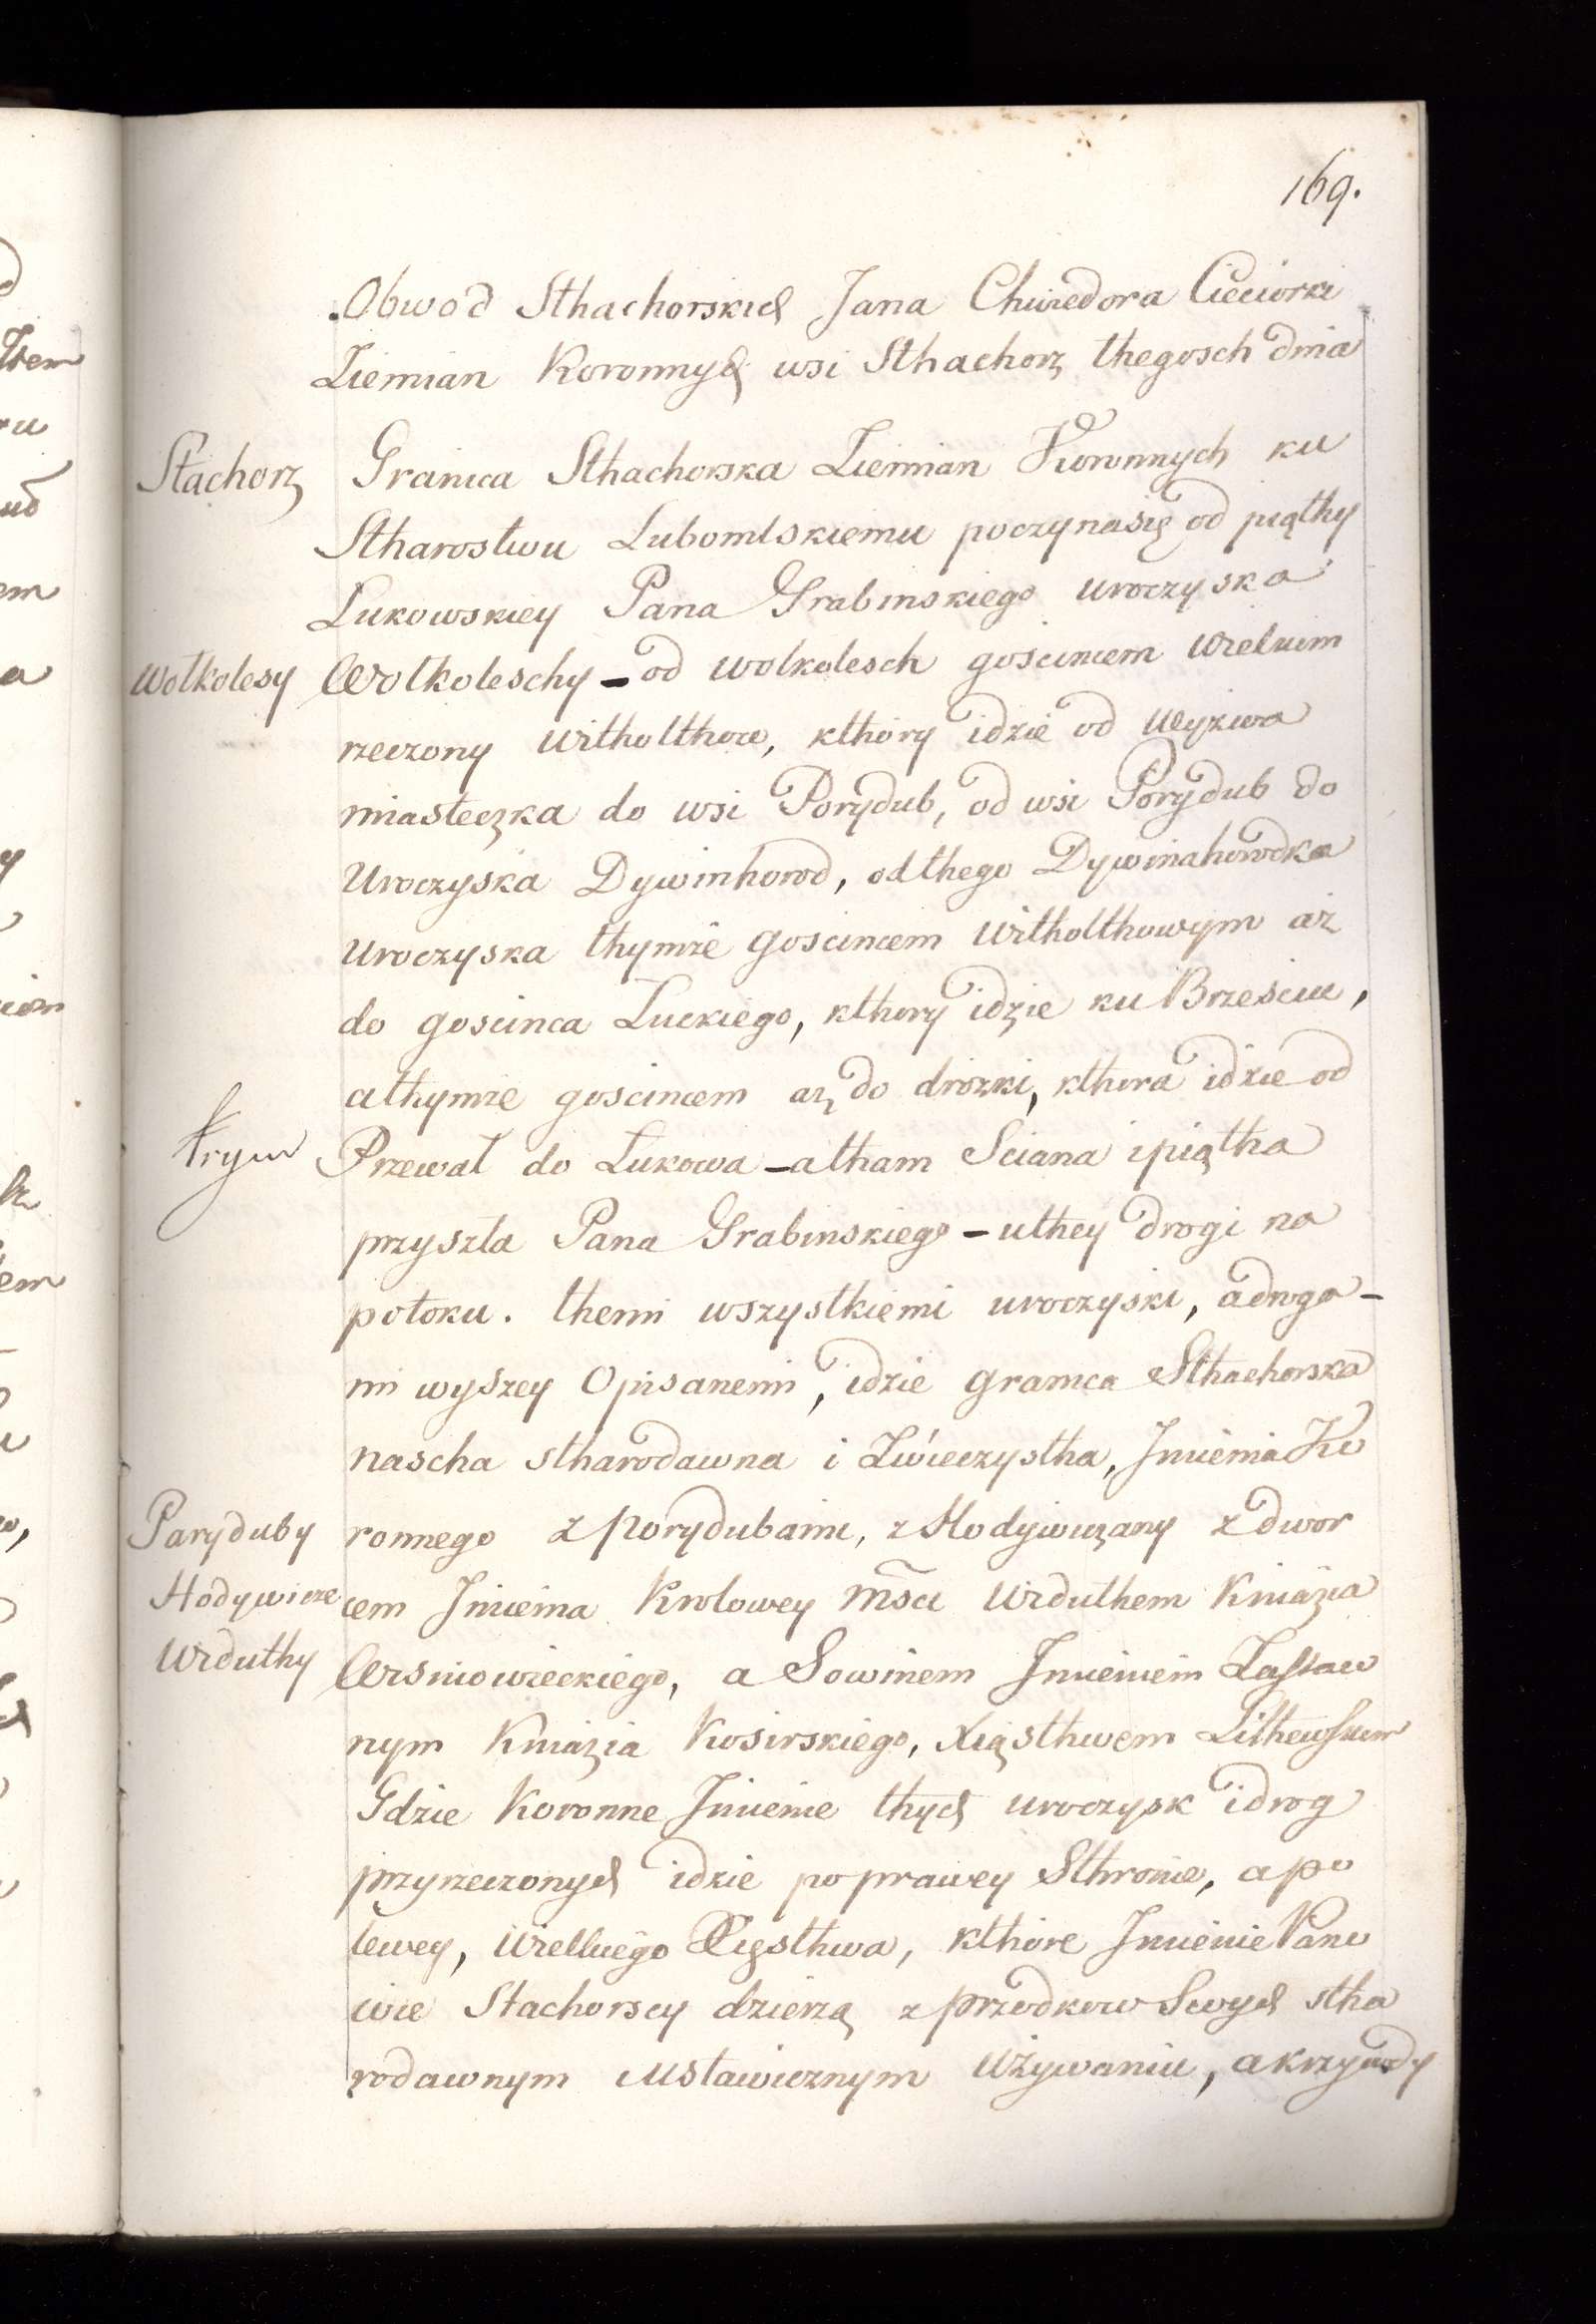 169.
Obwod Sthachorskich Jana Chwiedora Cieciorki
Ziemian Koronnych wsi Sthachorz thegosch dnia
Stachorz Granica Sthachorska Ziemian Koronnych ku
Stharostwu Lubomlskiemu poczynasię od piąthy
Lukowskiey Pana Grabinskiego uroczyska
Wołkolesy Wołkoleschy - od wolkolesch goscincem Wielkim
rzeczony Witholthow, kthory idzie od Wyzwa
miasteczka do wsi Porydub, od wsi Porydub do
Uroczyska Dywinhorod, odthego Dywinahorodka
Uroczyska thymze Goscincem Witholthowym az
do goscinca Luckiego, kthory idzie ku Brzesciu,
athymze goscincem az do drozki, kthora idzie od
Krym Przewal do Lukowa - atham Sciana ipiątha
przyszla Pana Grabinskiego - uthey drogi na
potoku. themi wszystkiemi uroczyski, adroga-
mi wyszey Opisanemi, idzie granica Sthachorska
nascha stharodawna i Zwieczystha, Imienia Ko
Paryduby ronnego z porydubami, z Hodywiczany z dwor
Hodywicze cem Imienia Krolowey Msci Wrduthem Kniazia
Wrduthy Wisniowieckiego, a Sowinem Imieniem Zastaw
nym Kniazia Kosirskiego, Xiąsthwem Lithewskim
Gdzie Koronne Imienie thych uroczysk idrog
przyrzeczonych idzie po prawey Sthronie, apo
lewey, Wielkiego Xięsthwa, kthore Imienie Pano
wie Stachorscy dzierzą z przodkow Swych stha
rodawnym Ustawicznym Używaniu, akrzywdy